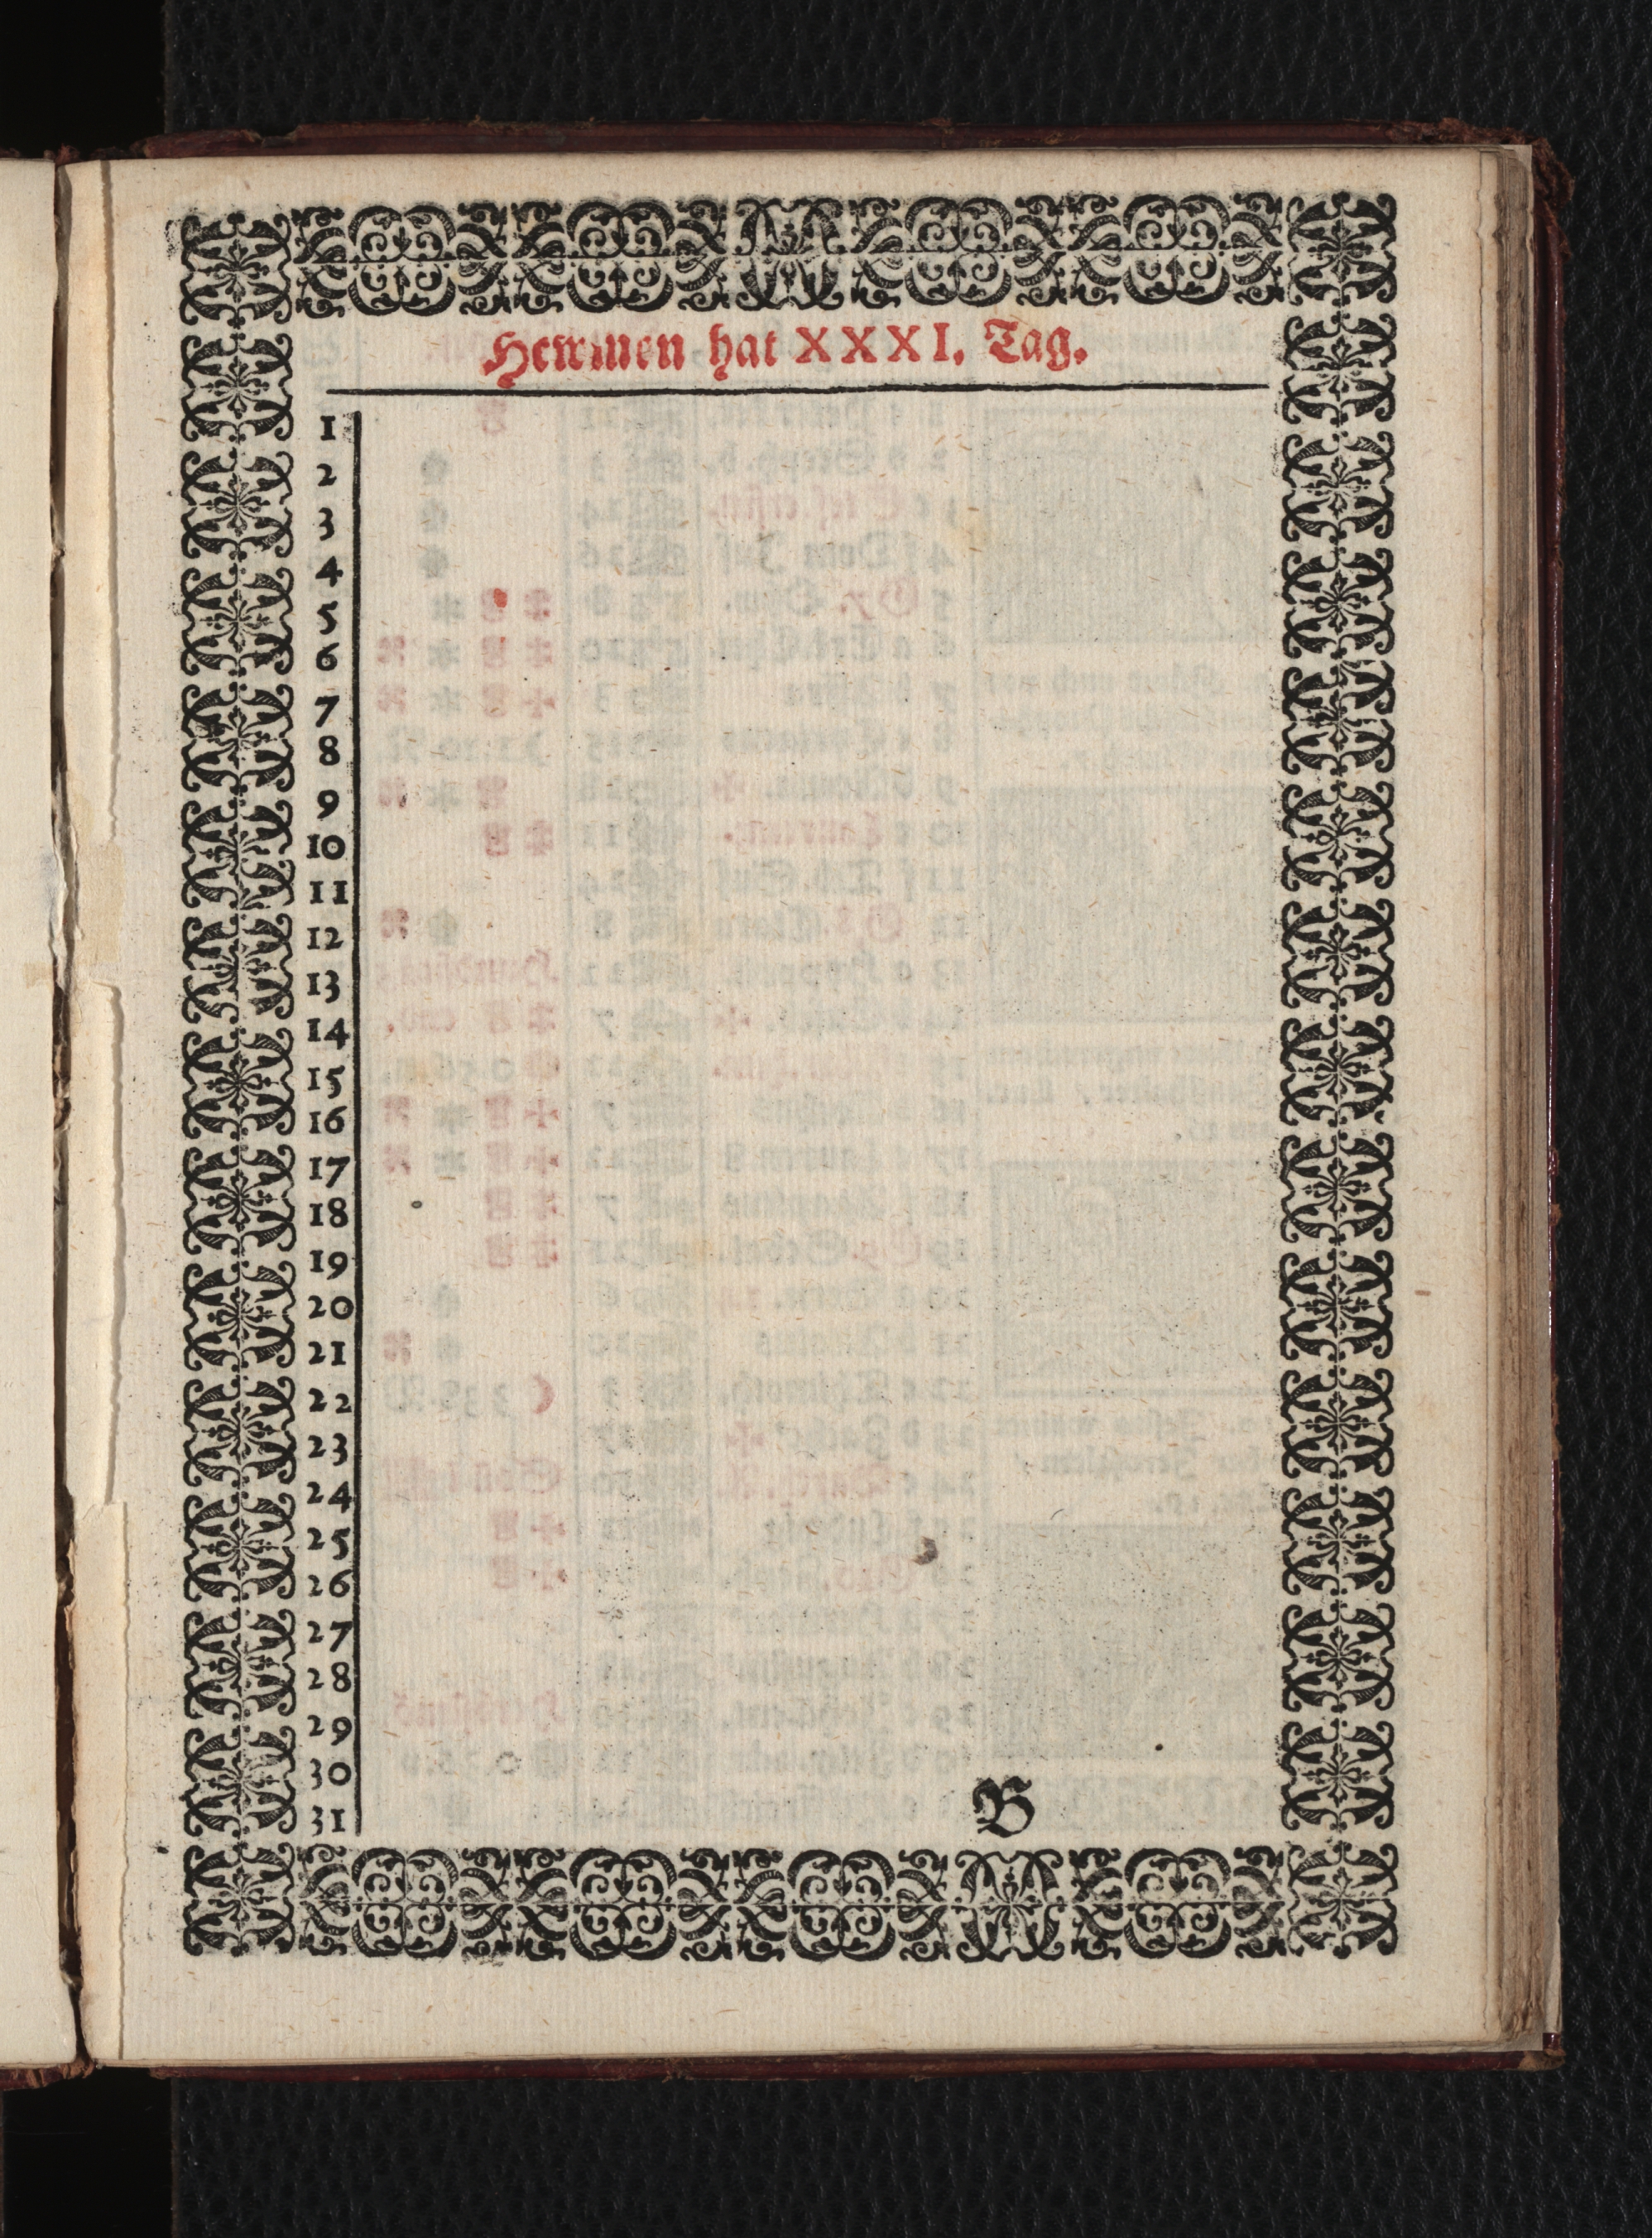 Hewmen hat XXXI. Tag.
1
2
3
4
5
6
7
8
9
10
11
12
13
14
15
16
17
18
19
20
21
22
23
24
25
26
27
28
29
30
31
B